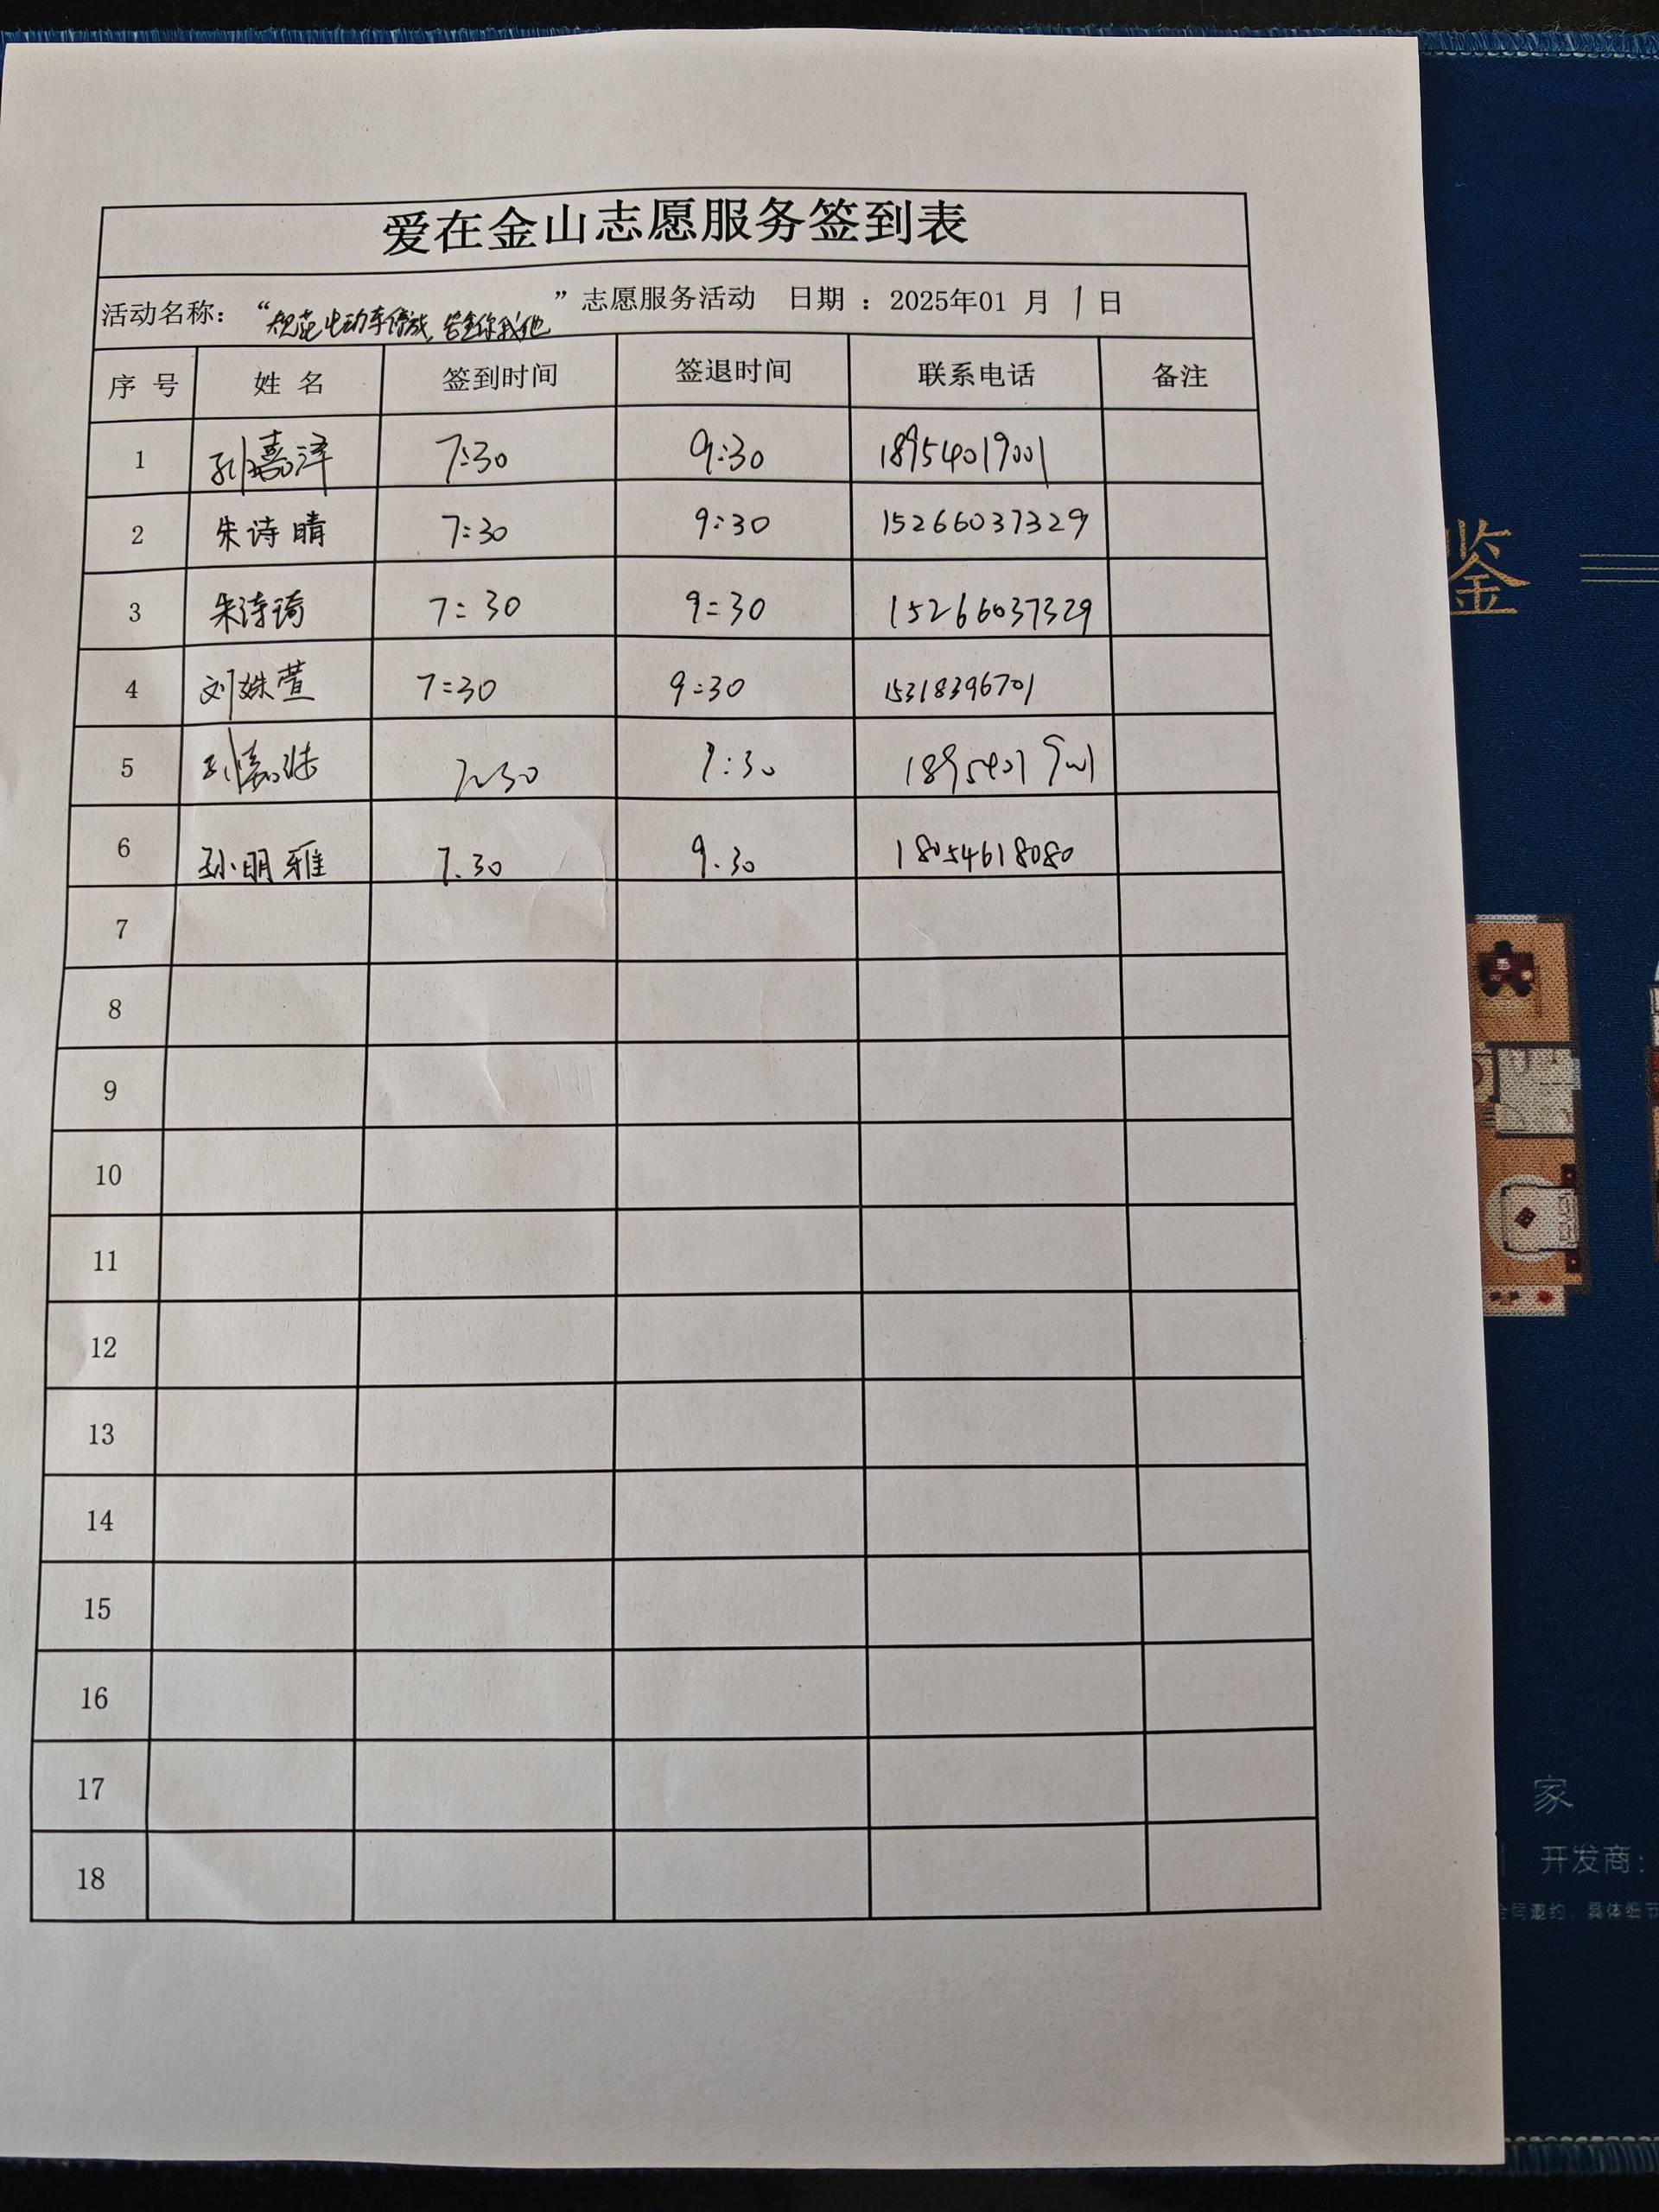 爱在金山志愿服务签到表
活动名称：“规范电动车停放，安全你我他”志愿服务活动 日期：2025年01月1日
序号 姓名 签到时间 签退时间 联系电话 备注
1 孙嘉泽 7:30 9:30 18954019001
2 朱诗晴 7:30 9:30 15266037329
3 朱诗琦 7:30 9:30 15266037329
4 刘姝萱 7:30 9:30 15318396701
5 孙嘉 7:30 9:30 18954019001
6 孙明雅 7.30 9.30 18054618080
7
8
9
10
11
12
13
14
15
16
17
18
鉴
家
开发商：
合同邀约，具体细节